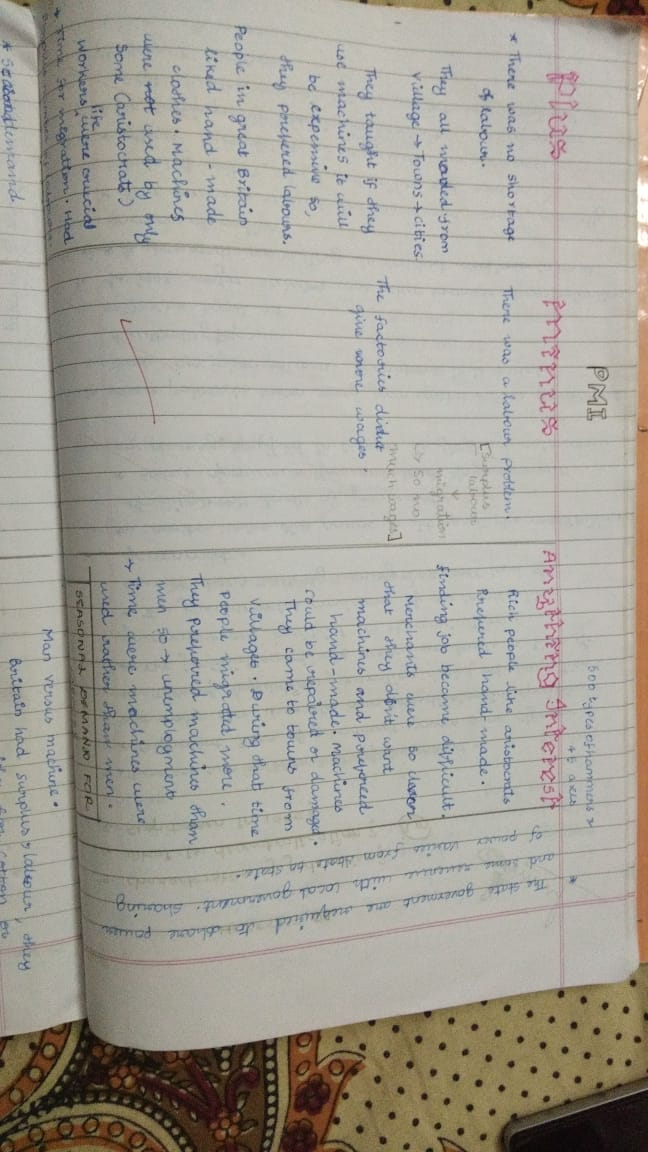 PMI
500 types of hammers &
45 axes
Plus
* There was no shortage
of labour.
They all moved from
village → Towns → cities
They taught if they
use machines it will
be expensive so,
they prefered labours.
People in great Britain
liked hand-made
clothes. Machines
were not used by only
some (aristocrats)
Workers like were crucial
→ Time for migration. Had
minus
There was a labour problem.
[surplus
labour
↓
migration
↳ so no
much wages]
The factories didnt
give more wages.
Anything Interest
Rich people like aristocrats
Prefered hand made.
finding job became difficult.
Merchants were so
that they don't want
machines and prefered
hand-made. Machines
could be repaired or damage.
They came to towns from
villages. During that time
people migrated more.
They preferred machines than
men so → unemployment
→ Time were machines were
used rather than men.
SEASONAL DEMAND FOR
* The state goverment are required to share power
and some revenue with local government. Sharing
of power varies from state to state.
* demand
Man versus machine.
Britain had surplus labour, they